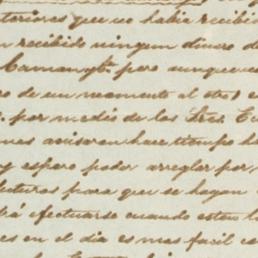 teriores que no habia recibido
n recibido ningun dinero de
Camangt. pero aunque
ro de un momento al otro e
. por medio de los Sres
mes avisaron hace tiempo h
y espero poder arreglar por m
lecturas para que se hagan
bá efectuarse cuando esten l
es en el dia es mas facil co